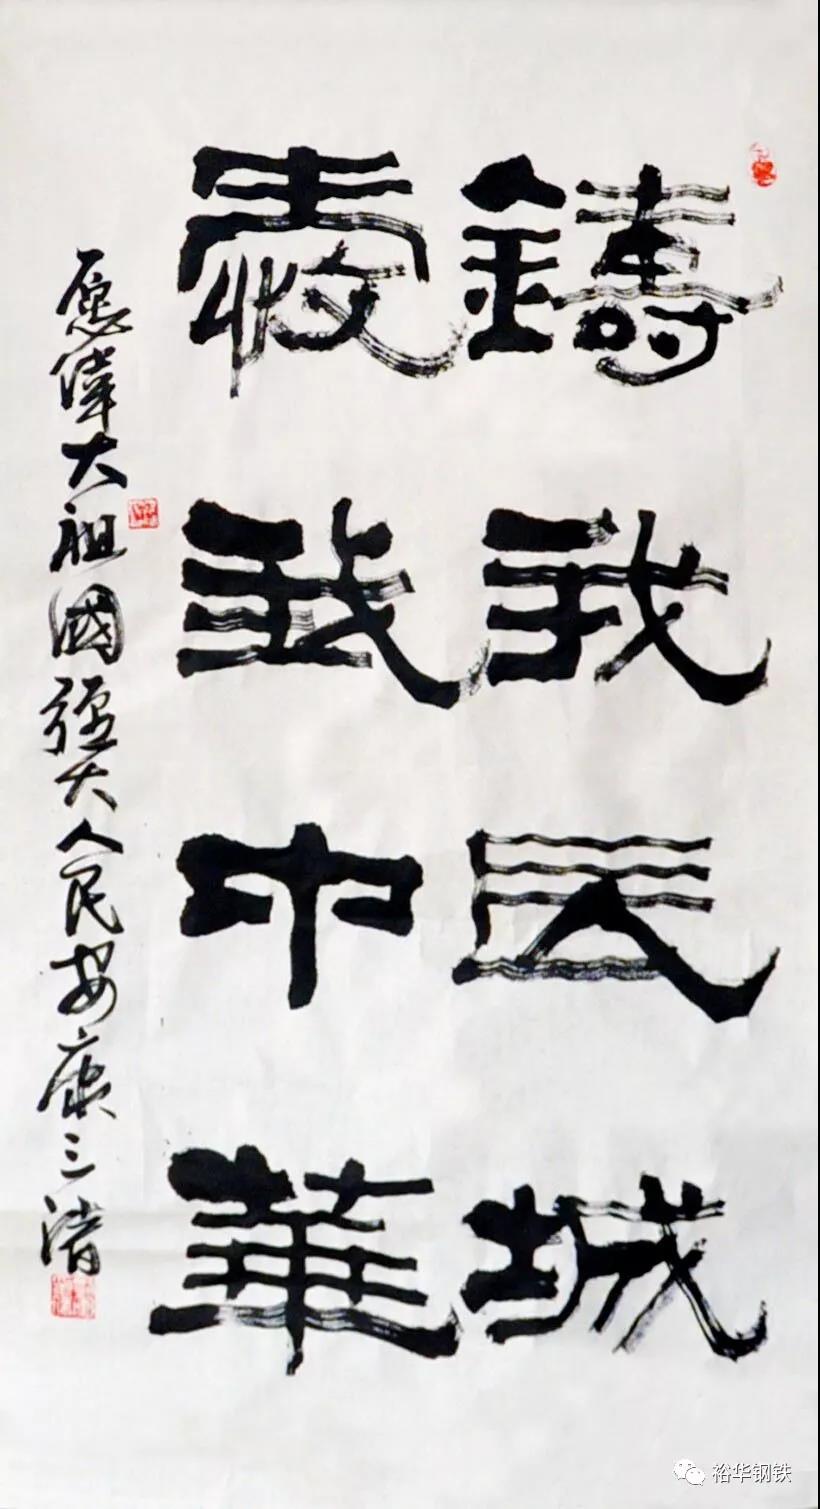 鑄我長城
愛我中華
愿偉大祖國强大人民安康三
裕华钢铁